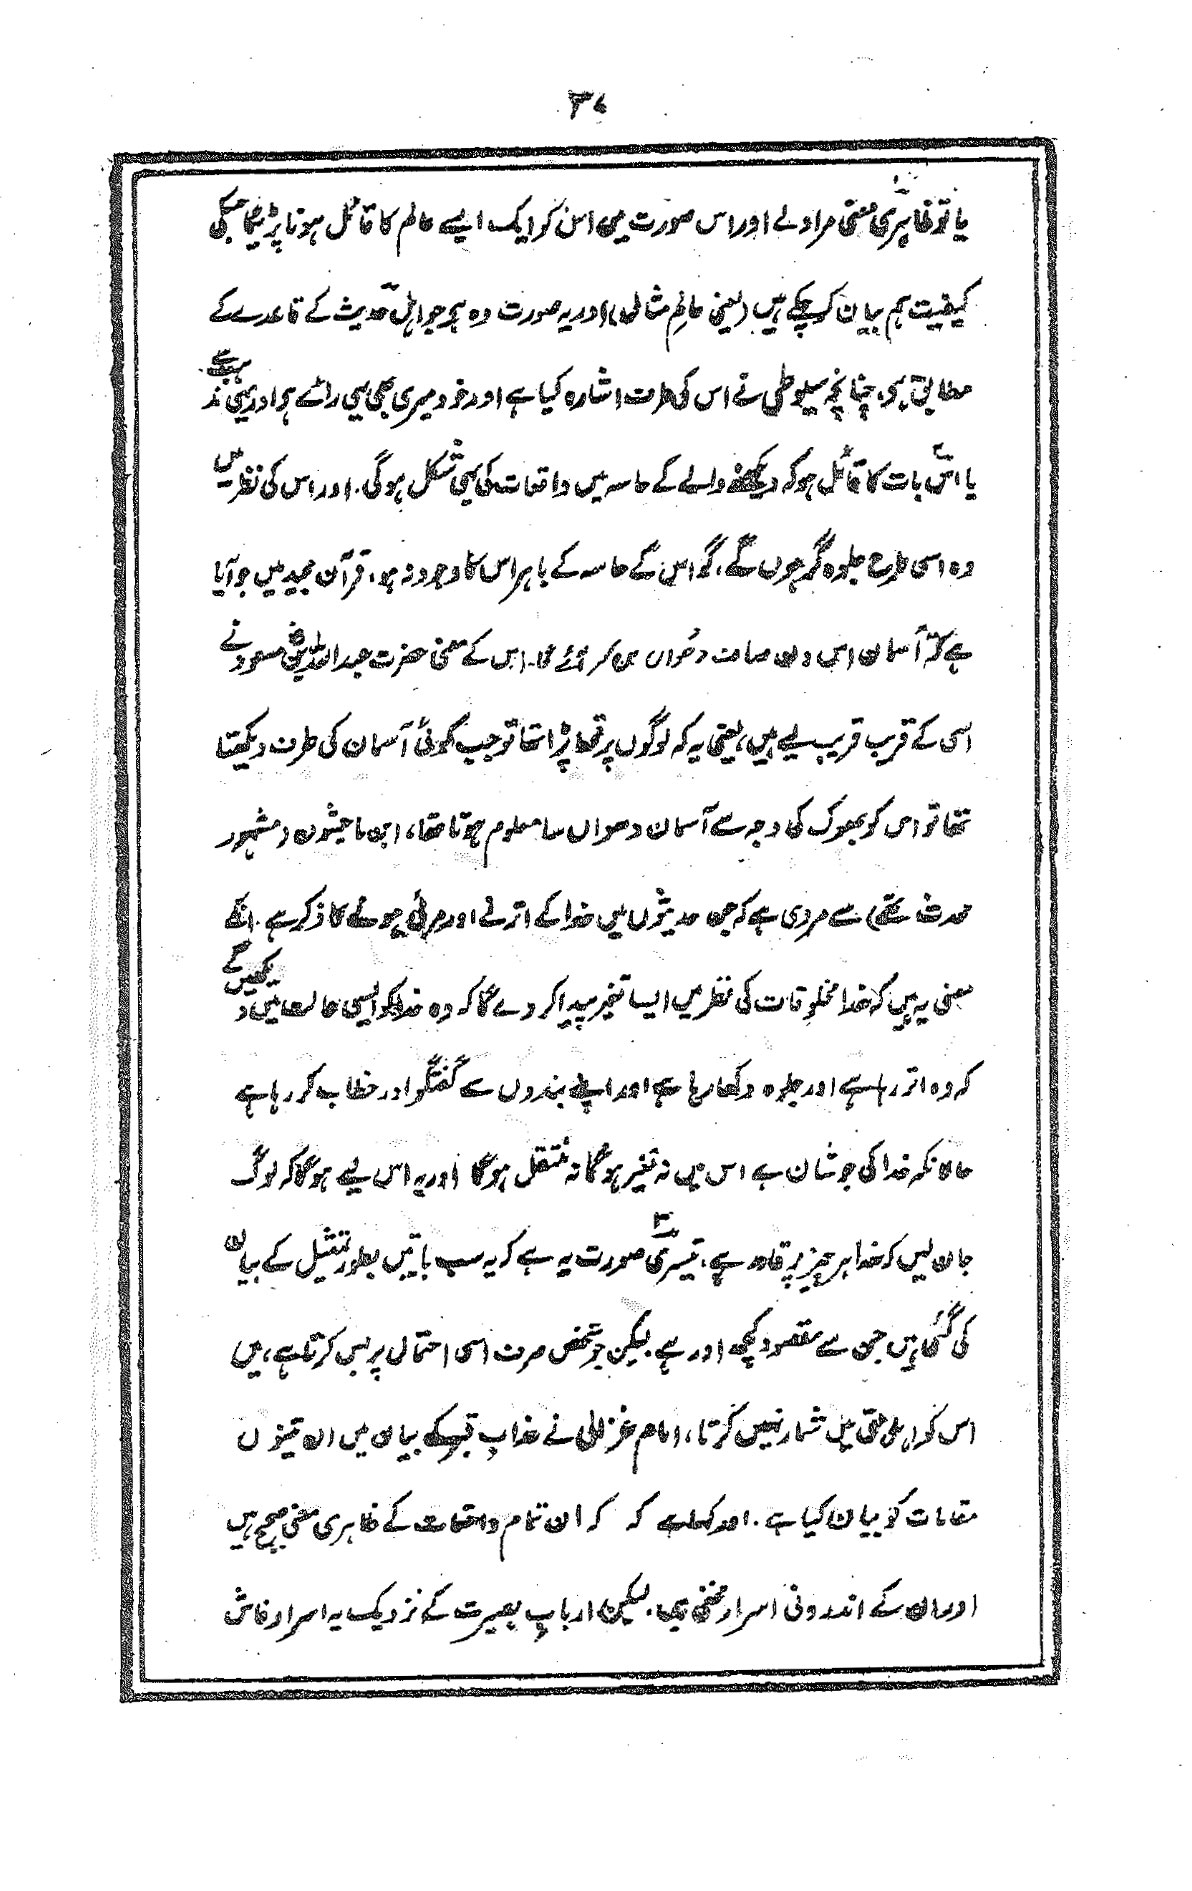 ۳۷
یا تو ظاہری معنی مراد لے اور اس صورت میں اس کو ایک ایسے عالم کا قائل ہونا پڑیگا جسکی
کیفیت ہم بیان کر چکے ہیں (یعنی عالمِ مثالی) اور یہ صورت وہ ہے جو اہل حدیث کے قاعدے کے
مطابق ہے، چنانچہ سیوطی نے اس کی طرف اشارہ کیا ہے اور خود میری بھی یہی رائے ہے اور یہی مذہب ہے
یا اس بات کا قائل ہو کہ دیکھنے والے کے حاسہ میں واقعات کی یہی شکل ہوگی۔ اور اس کی نظر میں
وہ اسی طرح جلوہ گر ہوں گے، گو اس کے حاسہ کے باہر اس کا وجود نہ ہو، قرآن مجید میں جو آیا
ہے کہ آسمان اس دن صاف دھواں بن کر آئے گا۔ اس کے معنی حضرت عبداللہ بن مسعودؓ نے
اسی کے قریب قریب لیے ہیں، یعنی یہ کہ لوگوں پر قحط پڑا تھا تو جب کوئی آسمان کی طرف دیکھتا
تھا تو اس کو بھوک کی وجہ سے آسمان دھواں سا معلوم ہوتا تھا، ابن ماجشون (مشہور
محدث تھے) سے مروی ہے کہ جن حدیثوں میں خدا کے اترنے اور مرئی ہونے کا ذکر ہے۔ انکے
معنی یہ ہیں کہ خدا مخلوقات کی نظر میں ایسا تغیر پیدا کر دے گا کہ وہ خدا کو ایسی حالت میں دیکھیں گے
کہ وہ اتر رہا ہے اور جلوہ دکھا رہا ہے اور اپنے بندوں سے گفتگو اور خطاب کر رہا ہے
حالانکہ خدا کی جو شان ہے اس میں نہ تغیر ہوگا نہ منتقل ہوگا اور یہ اس لیے ہوگا کہ لوگ
جان لیں کہ خدا ہر چیز پر قادر ہے، تیسری صورت یہ ہے کہ یہ سب باتیں بطور تمثیل کے بیان
کی گئی ہیں جن سے مقصود کچھ اور ہے۔ لیکن جو شخص صرف اسی احتمال پر بس کرتا ہے، میں
اس کو اہل حق میں شمار نہیں کرتا، امام غزالی نے عذابِ قبر کے بیان میں ان تینوں
مقامات کو بیان کیا ہے۔ اور کہا ہے کہ کہ ان تمام واقعات کے ظاہری معنی صحیح ہیں
اور ان کے اندرونی اسرار مخفی ہیں۔ لیکن اربابِ بصیرت کے نزدیک یہ اسرار فاش